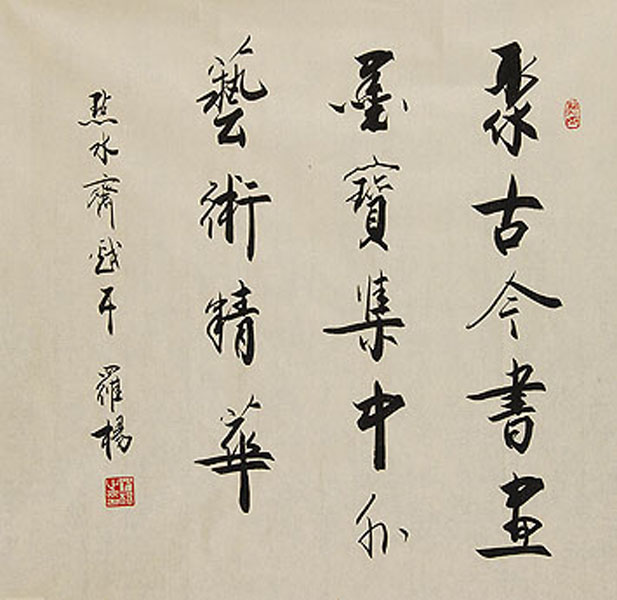 聚古今書畫
墨寶集中外
藝術精華
點水齋戲耳 羅楊